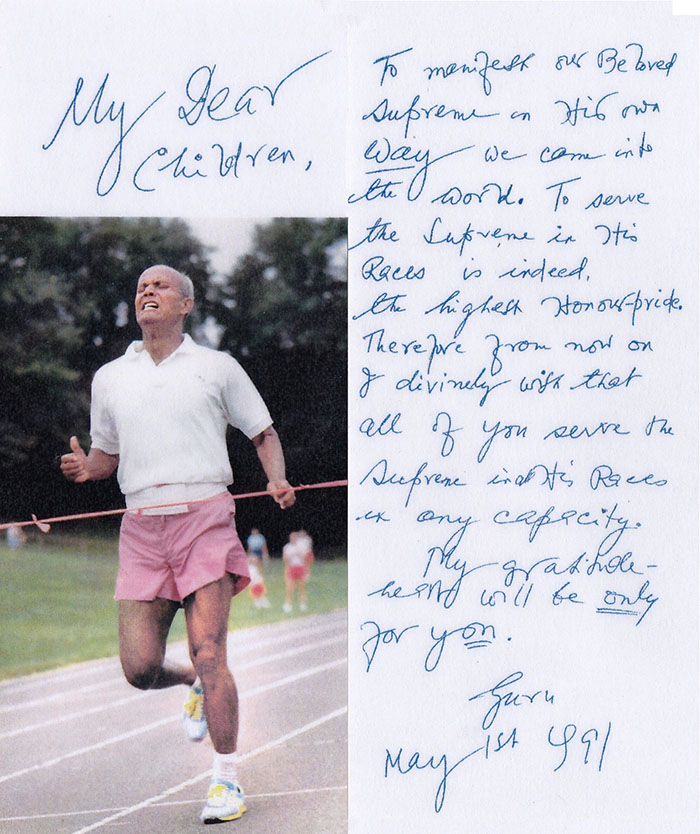 My Dear
Children,
To manifest our Beloved
Supreme in His own
Way we came into
the world. To serve
the Supreme in His
Races is indeed,
the highest Honour-pride.
Therefore from now on
I divinely wish that
all of you serve the
Supreme in His Races
in any capacity.
My gratitude-
heart will be only
for you.
Guru
May 1st 1991